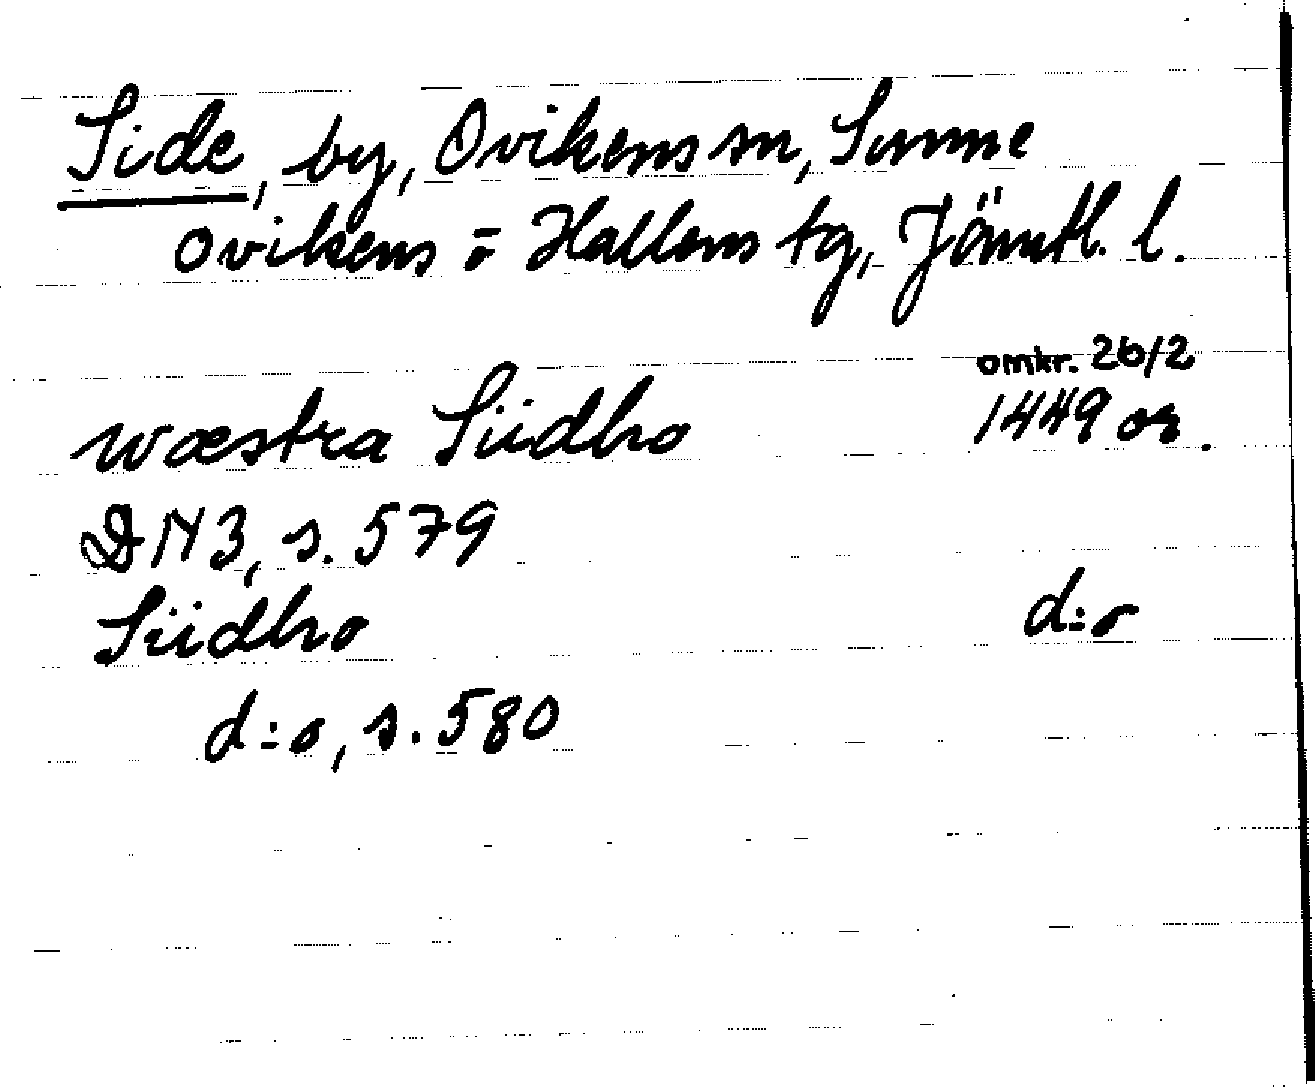 Side, by, Ovikens sn, Sunne
Ovikens = Hallens tg, Jämtl. l.
omkr. 26/2
wæstra Siidho 1449 or.
DN3, s. 579
Siidho d:o
d:o, s. 580